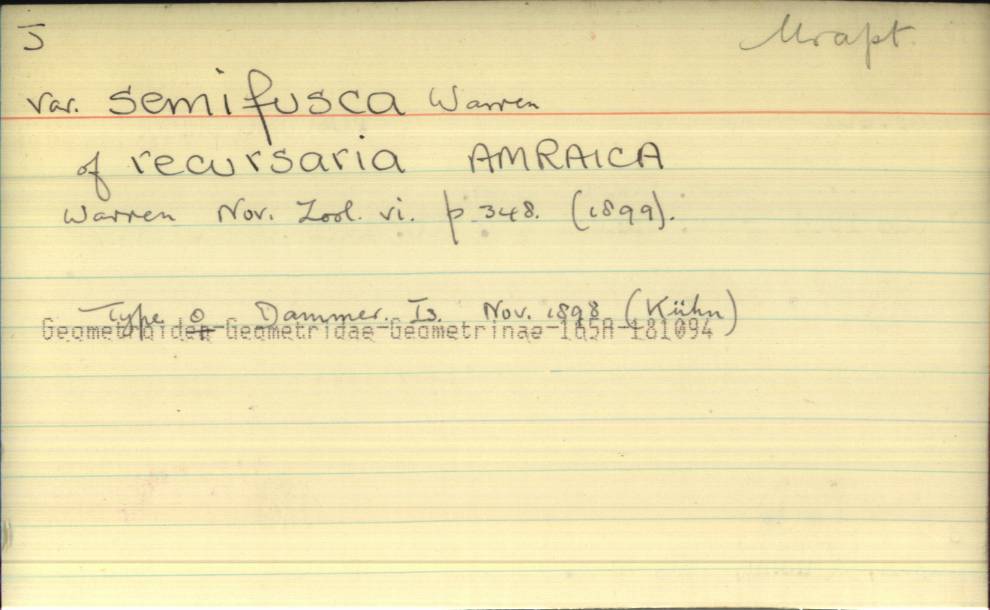 J
Urapt.
var. semifusca Warren
of recursaria AMRAICA
Warren Nov. Zool. vi. p. 348. (1899).
Type ♀ Dammer. Is. Nov. 1898 (Kühn)
Geometroidea-Geometridae-Geometrinae-165A-181094